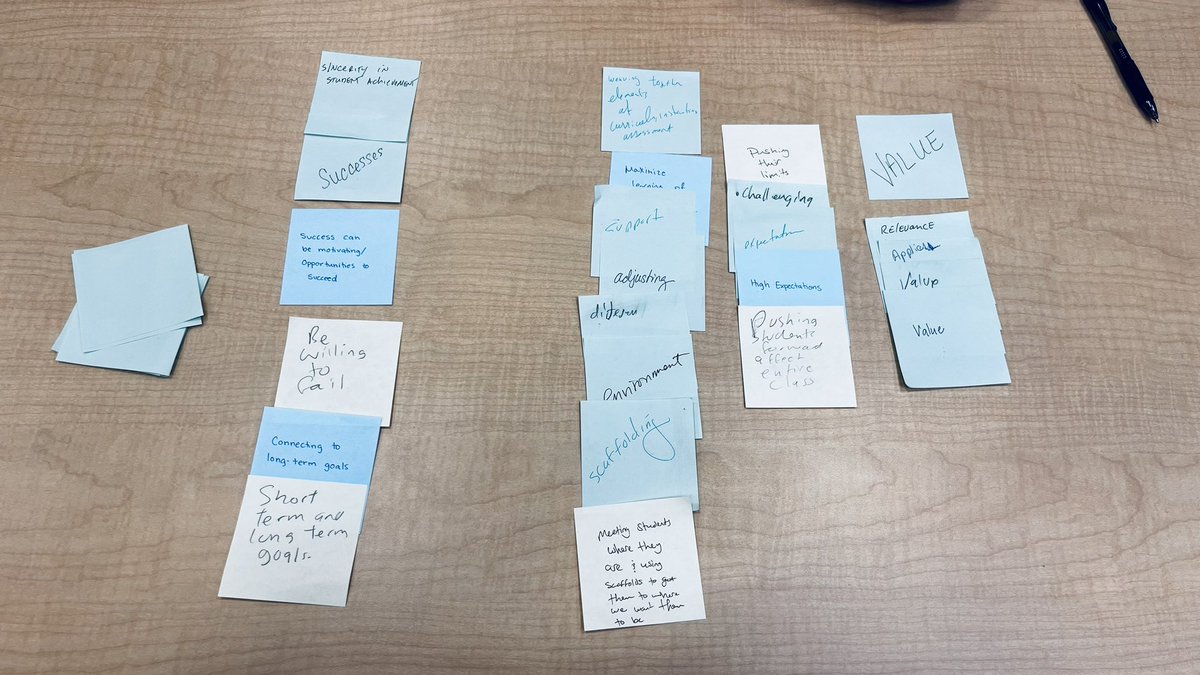 SINCERITY IN
STUDENT ACHIEVEMENT
Successes
Success can
be motivating/
Opportunities to
Succeed
Be
Willing
to
fail
Connecting to
long-term goals
Short
term and
long term
goals.
weaving together
elements
of
assessment
Maximize
learning of
Support
adjusting
environment
scaffolding
Meeting students
where they
are & using
scaffolds to get
them to where
we want them
to be
Pushing
their
limits
• Challenging
High Expectations
Pushing
students
forward
affect
entire
class
VALUE
RELEVANCE
Value
Value